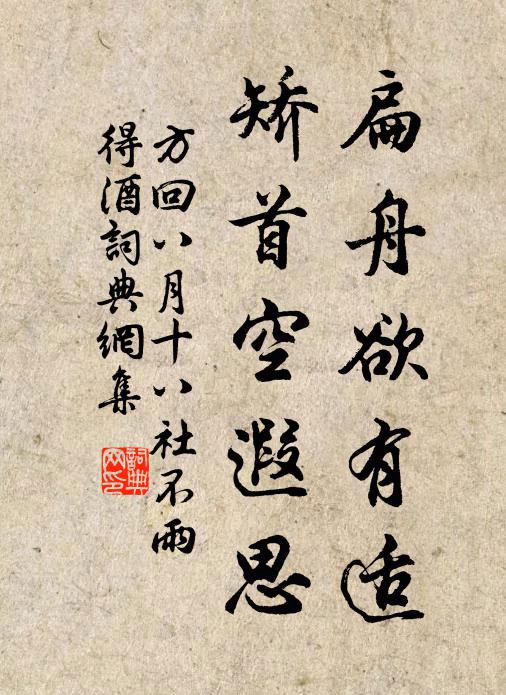 扁舟欲有适
矫首空遐思
方回八月十八社不雨
得酒詞典網集
詞典
网印